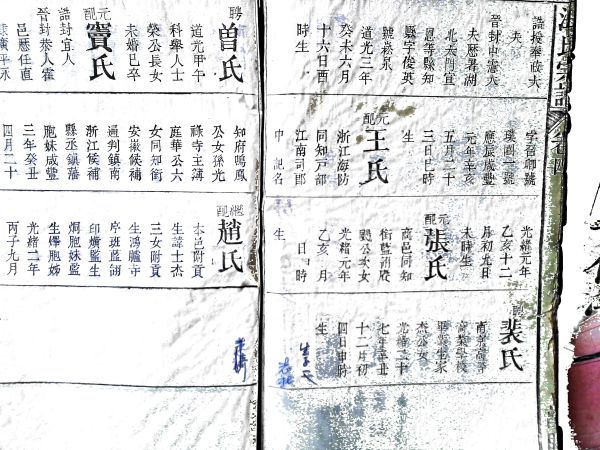 誥授奉政大
夫
晉封中憲大
夫歷署湖
北天門宣
恩等縣知
縣字俊英
號崧泉
道光三年
癸未六月
十六日酉
時生
字召卿號
璞園一號
應辰咸豐
元年辛亥
五月二十
三日巳時
生
元配王氏
浙江海防
同知戶部
江南司郎
中 記名
光緒元年
乙亥十二
月初九日
未時生
元配張氏
高邑同知
銜藍翎殿
颺公次女
光緒元年
乙亥 月
日 時
生
聘裴氏
南省高等
商業學校
畢業生家
杰公女
光緒二十
七年辛丑
十二月初
四日申時
生
聘曾氏
道光甲午
科舉人士
榮公長女
未婚已卒
元配竇氏
誥封宜人
晉封恭人霍
邑歷任直
隸廣平永
知府鳴鳳
公女孫光
祿寺主簿
庭華公六
女同知銜
安徽候補
通判鎮南
浙江候補
縣丞鎮藩
胞妹咸豐
三年癸丑
四月二十
繼配趙氏
本邑附貢
生諱士杰
三女附貢
生鴻臚寺
序班藍翎
印爌監生
炯胞妹監
生燡胞姊
光緒二年
丙子九月